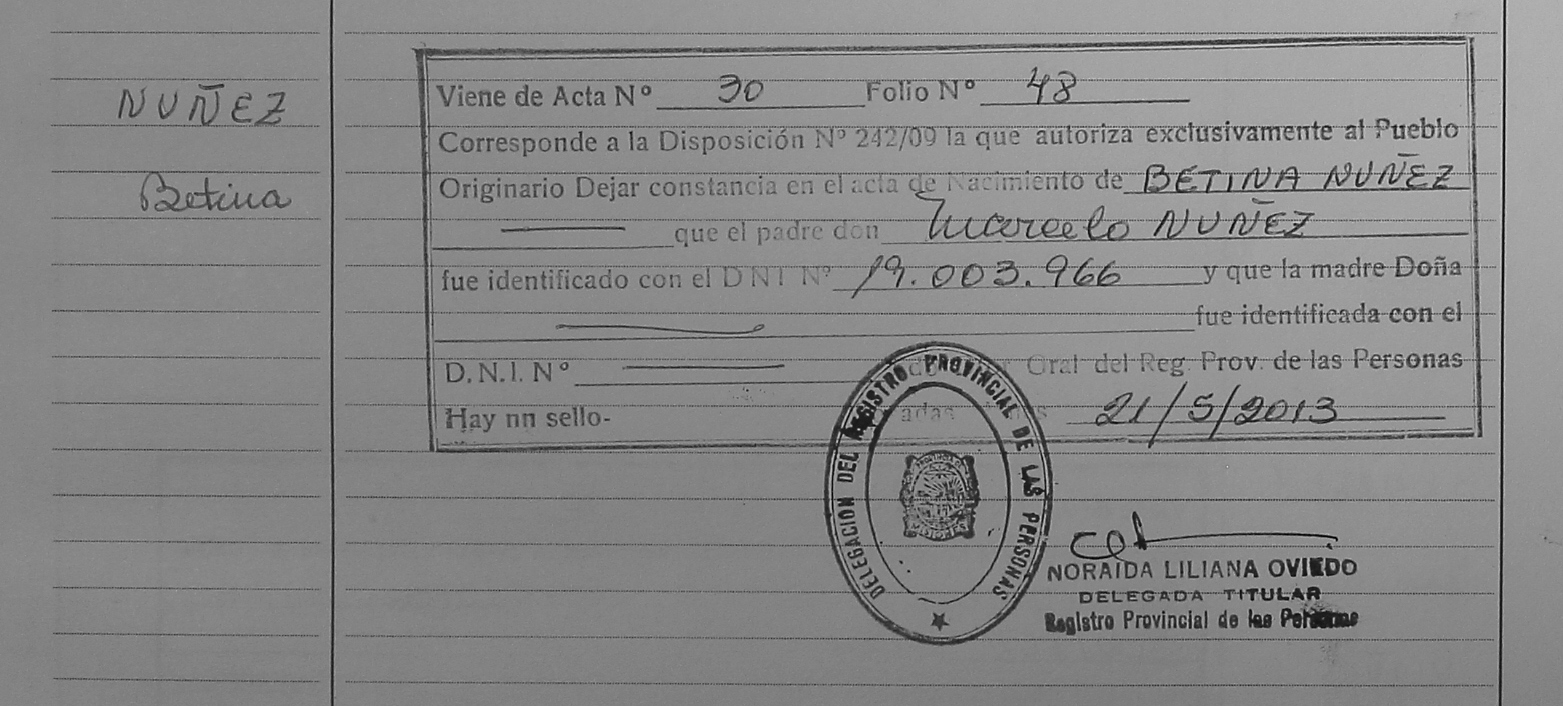 NUÑEZ
Betina
Viene de Acta Nº 30 Folio Nº 48
Corresponde a la Disposición Nº 242/09 la que autoriza exclusivamente al Pueblo
Originario Dejar constancia en el acta de Nacimiento de BETINA NUÑEZ
que el padre don Marcelo NUÑEZ
fue identificado con el DNI Nº 19.003.966 y que la madre Doña
fue identificada con el
D.N.I. Nº Gral del Reg. Prov. de las Personas
Hay nn sello- 21/5/2013
DELEGACION DEL REGISTRO PROVINCIAL DE LAS PERSONAS
NORAIDA LILIANA OVIEDO
DELEGADA TITULAR
Registro Provincial de las Personas